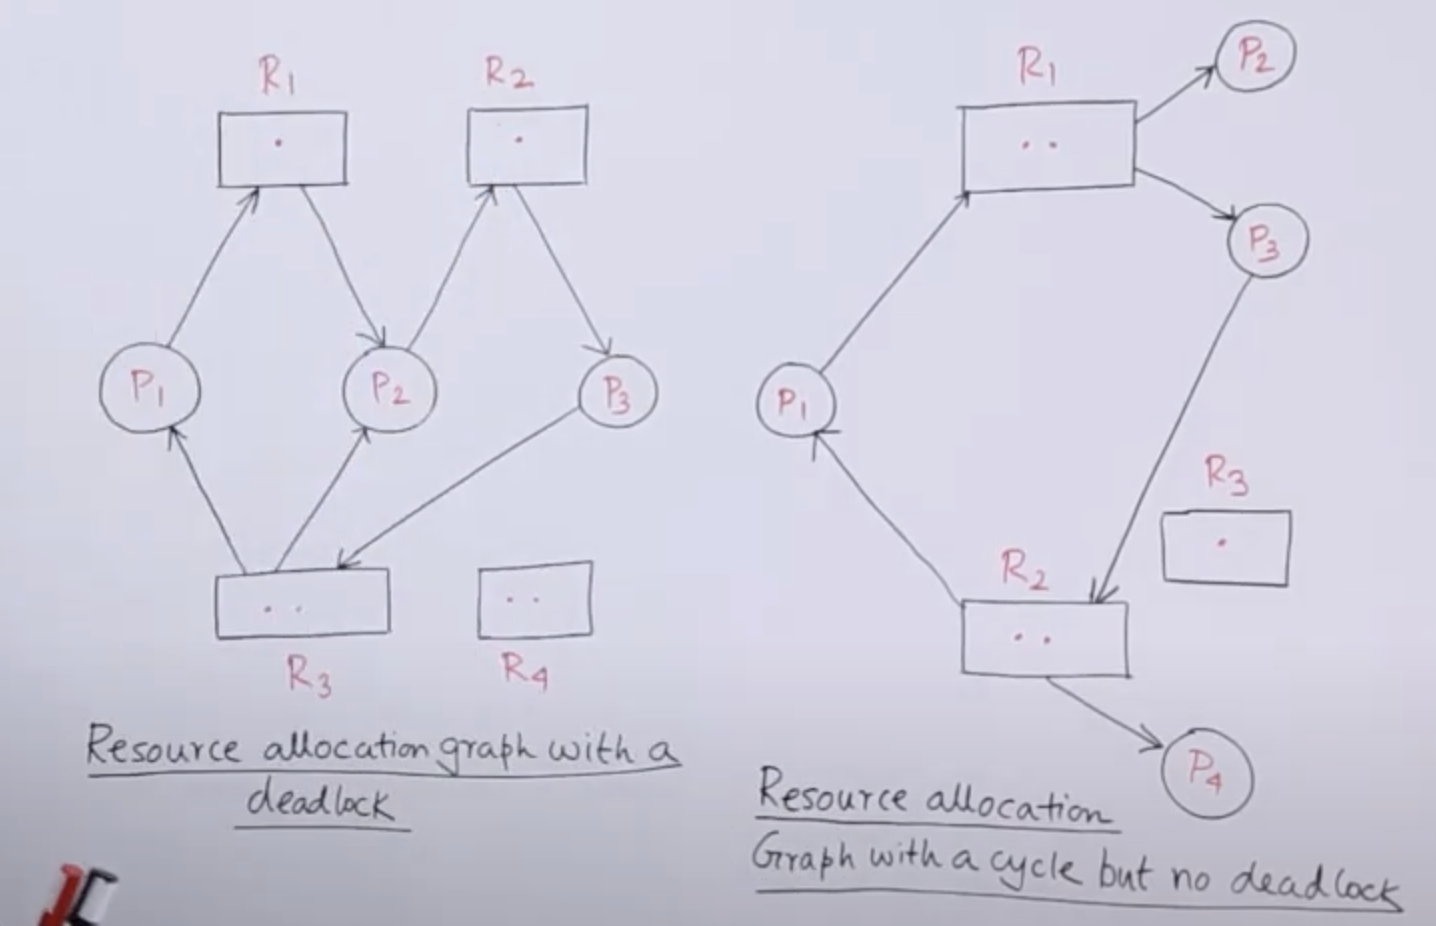 R1
R2
P1
P2
P3
R3
R4
Resource allocation graph with a
deadlock
R1
P2
P3
P1
R3
R2
P4
Resource allocation
Graph with a cycle but no deadlock